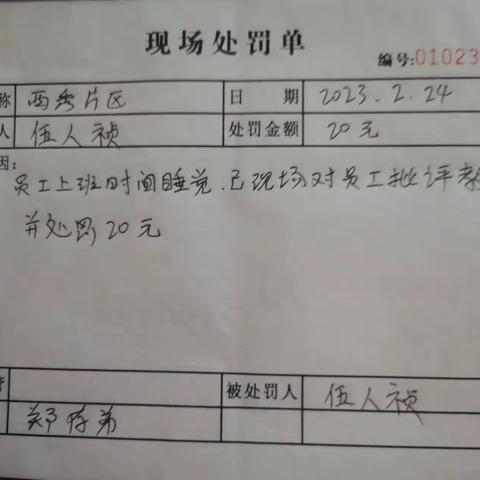 现场处罚单
编号:01023
称 西秀片区 日 期 2023.2.24
人 伍人祯 处罚金额 20元
因:
员工上班时间睡觉.已现场对员工批评教
并处罚20元
被处罚人 伍人祯
郑